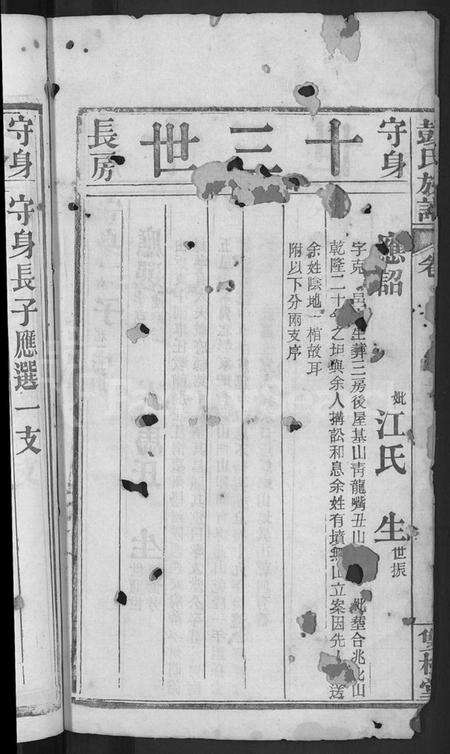 彭氏族譜 卷
守身 十三世 長房
應詔 妣江氏 生世振
字克 邑庠生葬三房後屋基山靑龍嘴丑山 妣塋合兆此山
乾隆二十 年之塘與余人搆訟和息余姓有墳無山立案因先人 送
余姓陰地一棺故耳
附以下分兩支序
守身 守身長子應選一支